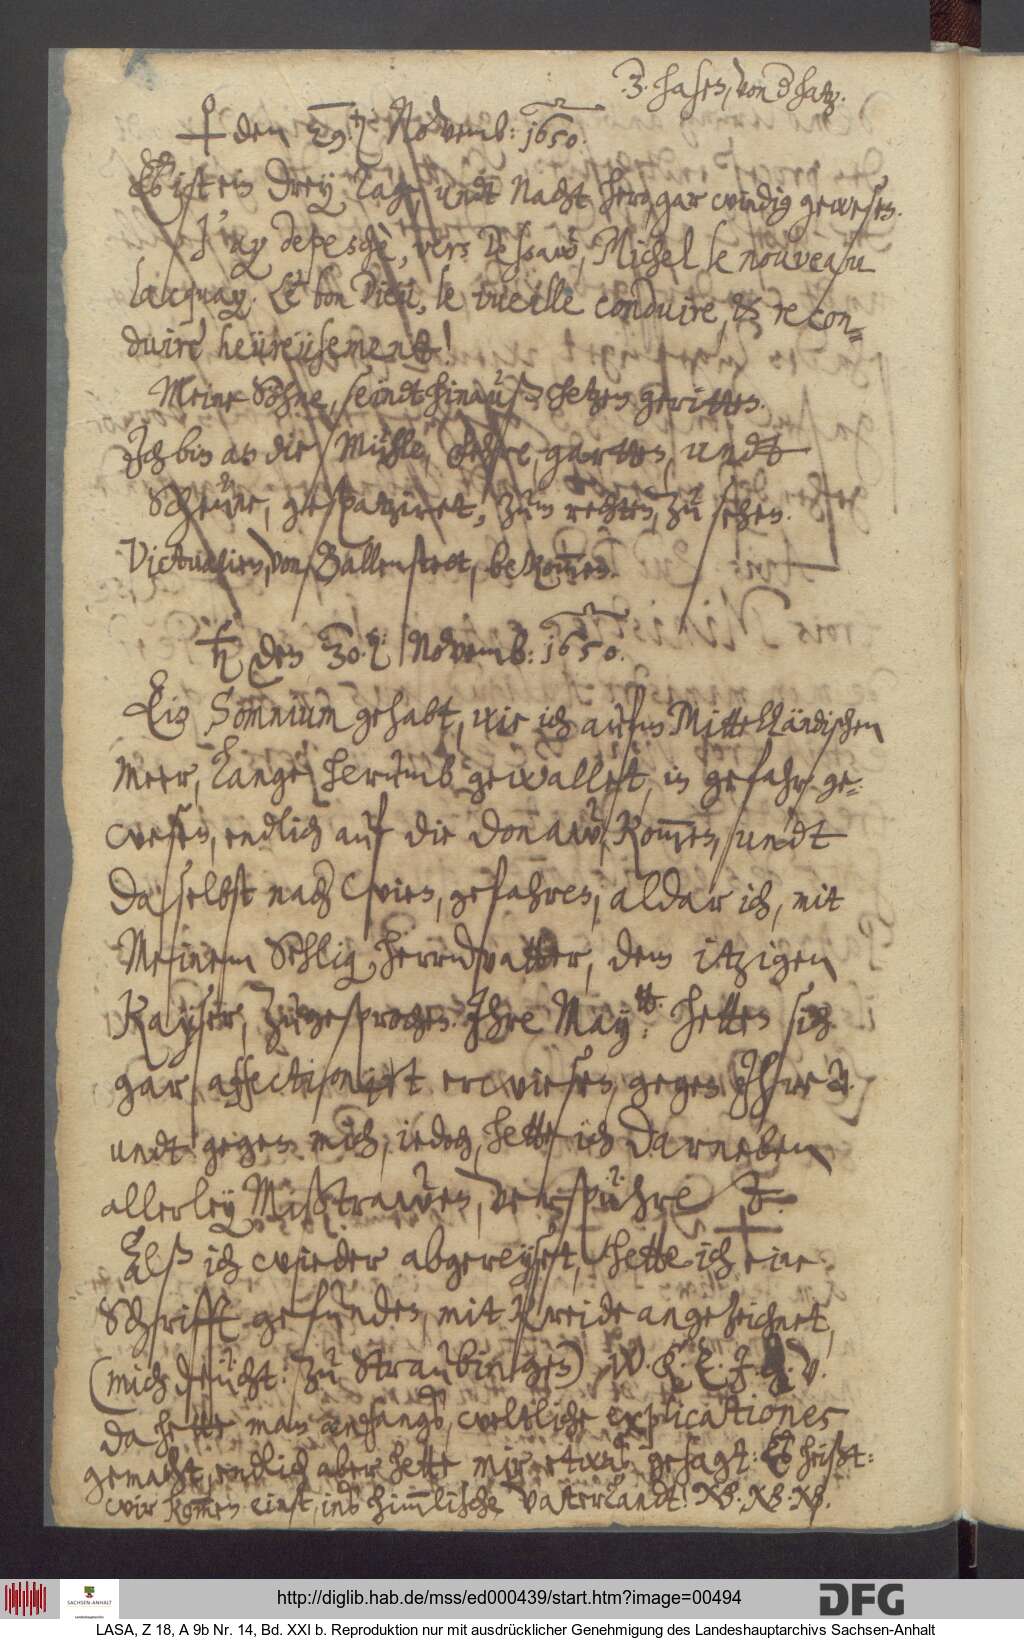 3. hasen, von d hatz.
♀ den 29. Novemb: 1650.
Es ist ein drey Tage, undt Nacht hero, gar windig gewesen.
J'ay depeschè, vers Dessaw, Michel le nouveau
lacquay. Le bon Dieu, le vueille conduire, & recon-
duire heüreüsement!
Meine Söhne, seindt hinauß hetzen geritten.
Ich bin an die Mühle, gartten, undt
Scheüne, gespatziret, zum rechten, zu sehen.
Victualien, von Ballenstedt, bekommen.
♄ den 30. Novemb: 1650.
Ein Somnium gehabt, wie ich aufm Mittelländischen
Meer, lange herumb gewallet, in gefahr ge-
wesen, endlich auf die Donaw, kommen, undt
daselbst nach Wien, gefahren, aldar ich, mit
Meinem Sehlig herrnvatter, dem itzigen
Kayser, zugesprochen. Ihre May:tt. hetten sich
gar affectionirt erwiesen, gegen Ihre
undt gegen mich, iedoch, hette ich darneben
allerley Mißtrawen, verspühret
Alß ich wieder abgereyset, hette ich eine
Schrifft gefunden, mit Kreide angezeichnet,
(mich deücht: zu Straubingen) W. K. E. J. H. V.
da hette man anfangs, weltliche explicationes
gemacht, endlich aber hette mir etwas gesagt: Es heißt:
wir kommen einst, ins himmlische Vatterlandt! NB. NB. NB.
http://diglib.hab.de/mss/ed000439/start.htm?image=00494
DFG
SACHSEN-ANHALT
LASA, Z 18, A 9b Nr. 14, Bd. XXI b. Reproduktion nur mit ausdrücklicher Genehmigung des Landeshauptarchivs Sachsen-Anhalt